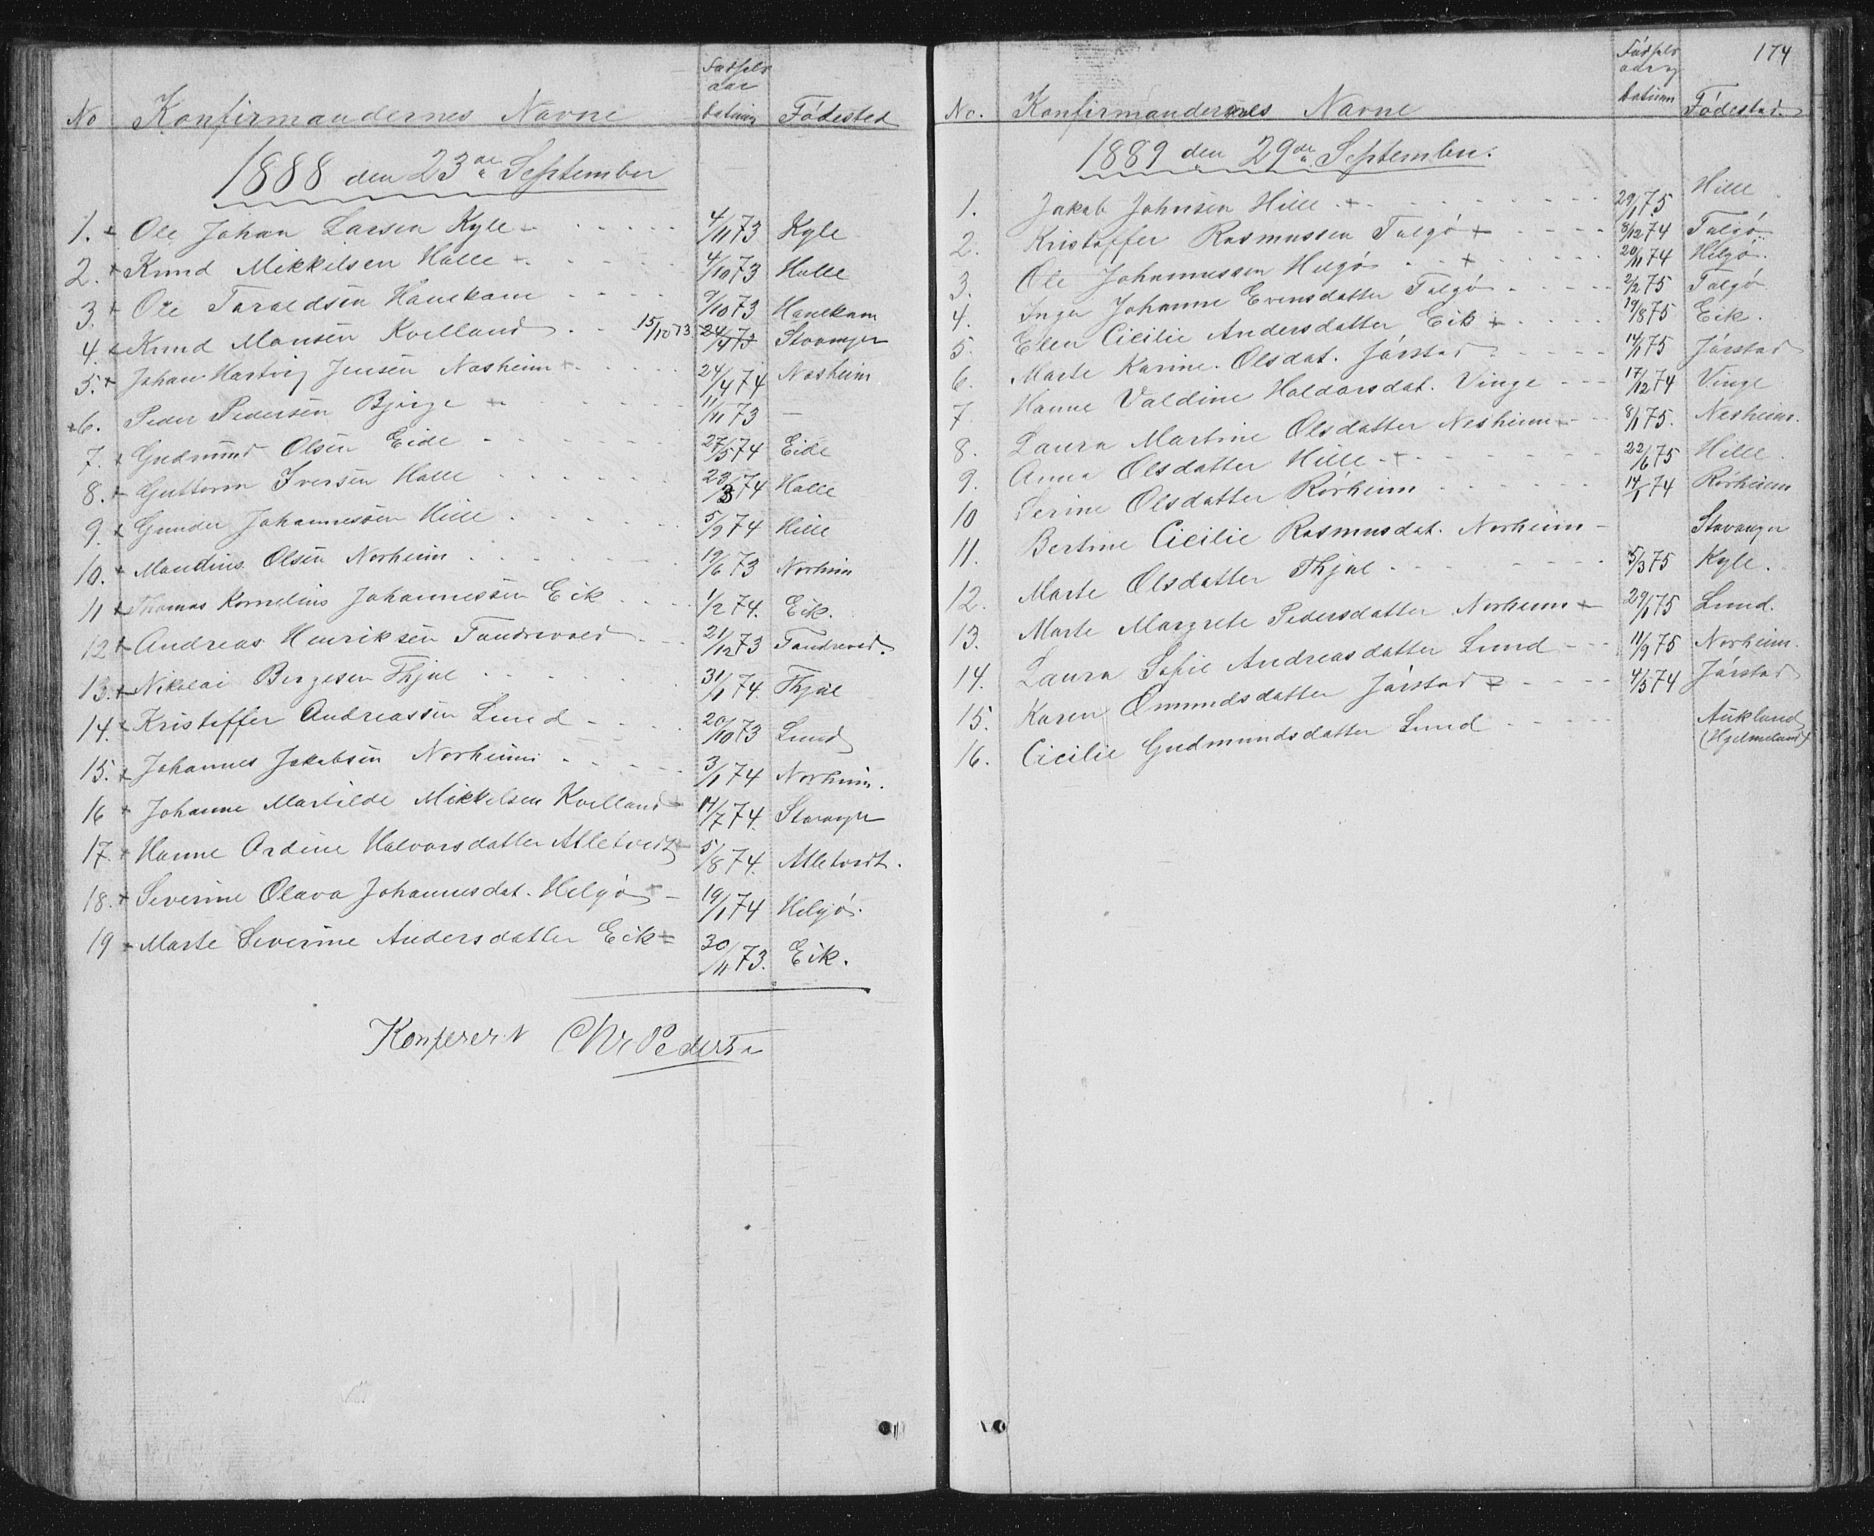 No Konfirmandernes Navne Fødsels aar datum Fødested
1888 den 23de September
1. Ole Johan Larsen Kyle 4/11 73 Kyle
2. Knud Mikkelsen Halle 4/10 73 Halle
3. Ole Taraldsen Hanekam 9/10 73 Hanekam
4. Knud Monsen Kvelland 15/10 73 24/4 73 Stavanger
5. Johan Hartvig Jensen Nasheim 24/4 74 Nasheim
6. Peder Pedersen Bjørge 11/11 73 —
7. Gudmund Olsen Eide 27/5 74 Eide
8. Guttorm Iversen Halle 23/3 74 Halle
9. Gunder Johannessen Hille 5/9 74 Hille
10. Mandius Olsen Norheim 19/6 73 Norheim
11 Thomas Kornelius Johannessen Eik 1/2 74. Eik.
12 Andreas Henriksen Tandrevold 21/12 73 Tandrevold.
13. Nikolai Bergesen Thjul 31/1 74. Thjul
14. Kristoffer Andreassen Lund 20/10 73 Lund
15. Johannes Jakobsen Norheim 3/1 74 Norheim.
16 Johanne Martilde Mikkelsen Kvelland 14/7 74. Stavanger
17. Hanne Ordine Halvorsdatter Atletvedt 5/8 74. Atletvedt.
18. Severine Olava Johannesdat. Helgø 19/1 74 Helgø.
19 Marte Severine Andersdatter Eik 30/11 73. Eik.
Konferert Chr Pedersen
174
No. Konfirmandernes Navne Fødsels aar og datum Fødested
1889 den 29de September.
1. Jakob Johnsen Hille 29/1 75 Hille
2. Kristoffer Rasmussen Talgø 8/12 74 Talgø
3. Ole Johannessen Helgø 20/11 74 Helgø.
4. Inger Johanne Evensdatter Talgø 2/2 75 Talgø
5. Elen Cicilie Andersdatter Eik 19/8 75 Eik.
6. Marte Karine Olsdat. Jørstad 14/1 75 Jørstad
7. Hanne Valdine Haldorsdat. Vinge 17/12 74 Vinge
8. Laura Martine Olsdatter Nesheim 8/1 75. Nesheim.
9. Anna Olsdatter Hille 22/6 75 Hille.
10 Serine Olsdatter Rørheim 14/1 74 Rørheim
11. Bertine Cicilie Rasmusdat. Norheim Stavanger
12. Marte Olsdatter Thjul 5/3 75 Kyle.
13. Marte Margrete Pedersdatter Norheim 29/1 75 Lund.
14. Laura Sofie Andreasdatter Lund 11/9 75 Norheim.
15. Karen Omundsdatter Jørstad 4/5 74 Jørstad
16. Cicilie Gudmundsdatter Lund Aukland
(Hjelmeland)